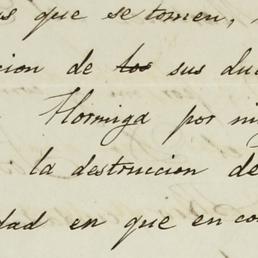 s que se tomen,
cion de los sus du
Hormiga por ni
i la destrucion de
dad en que en co